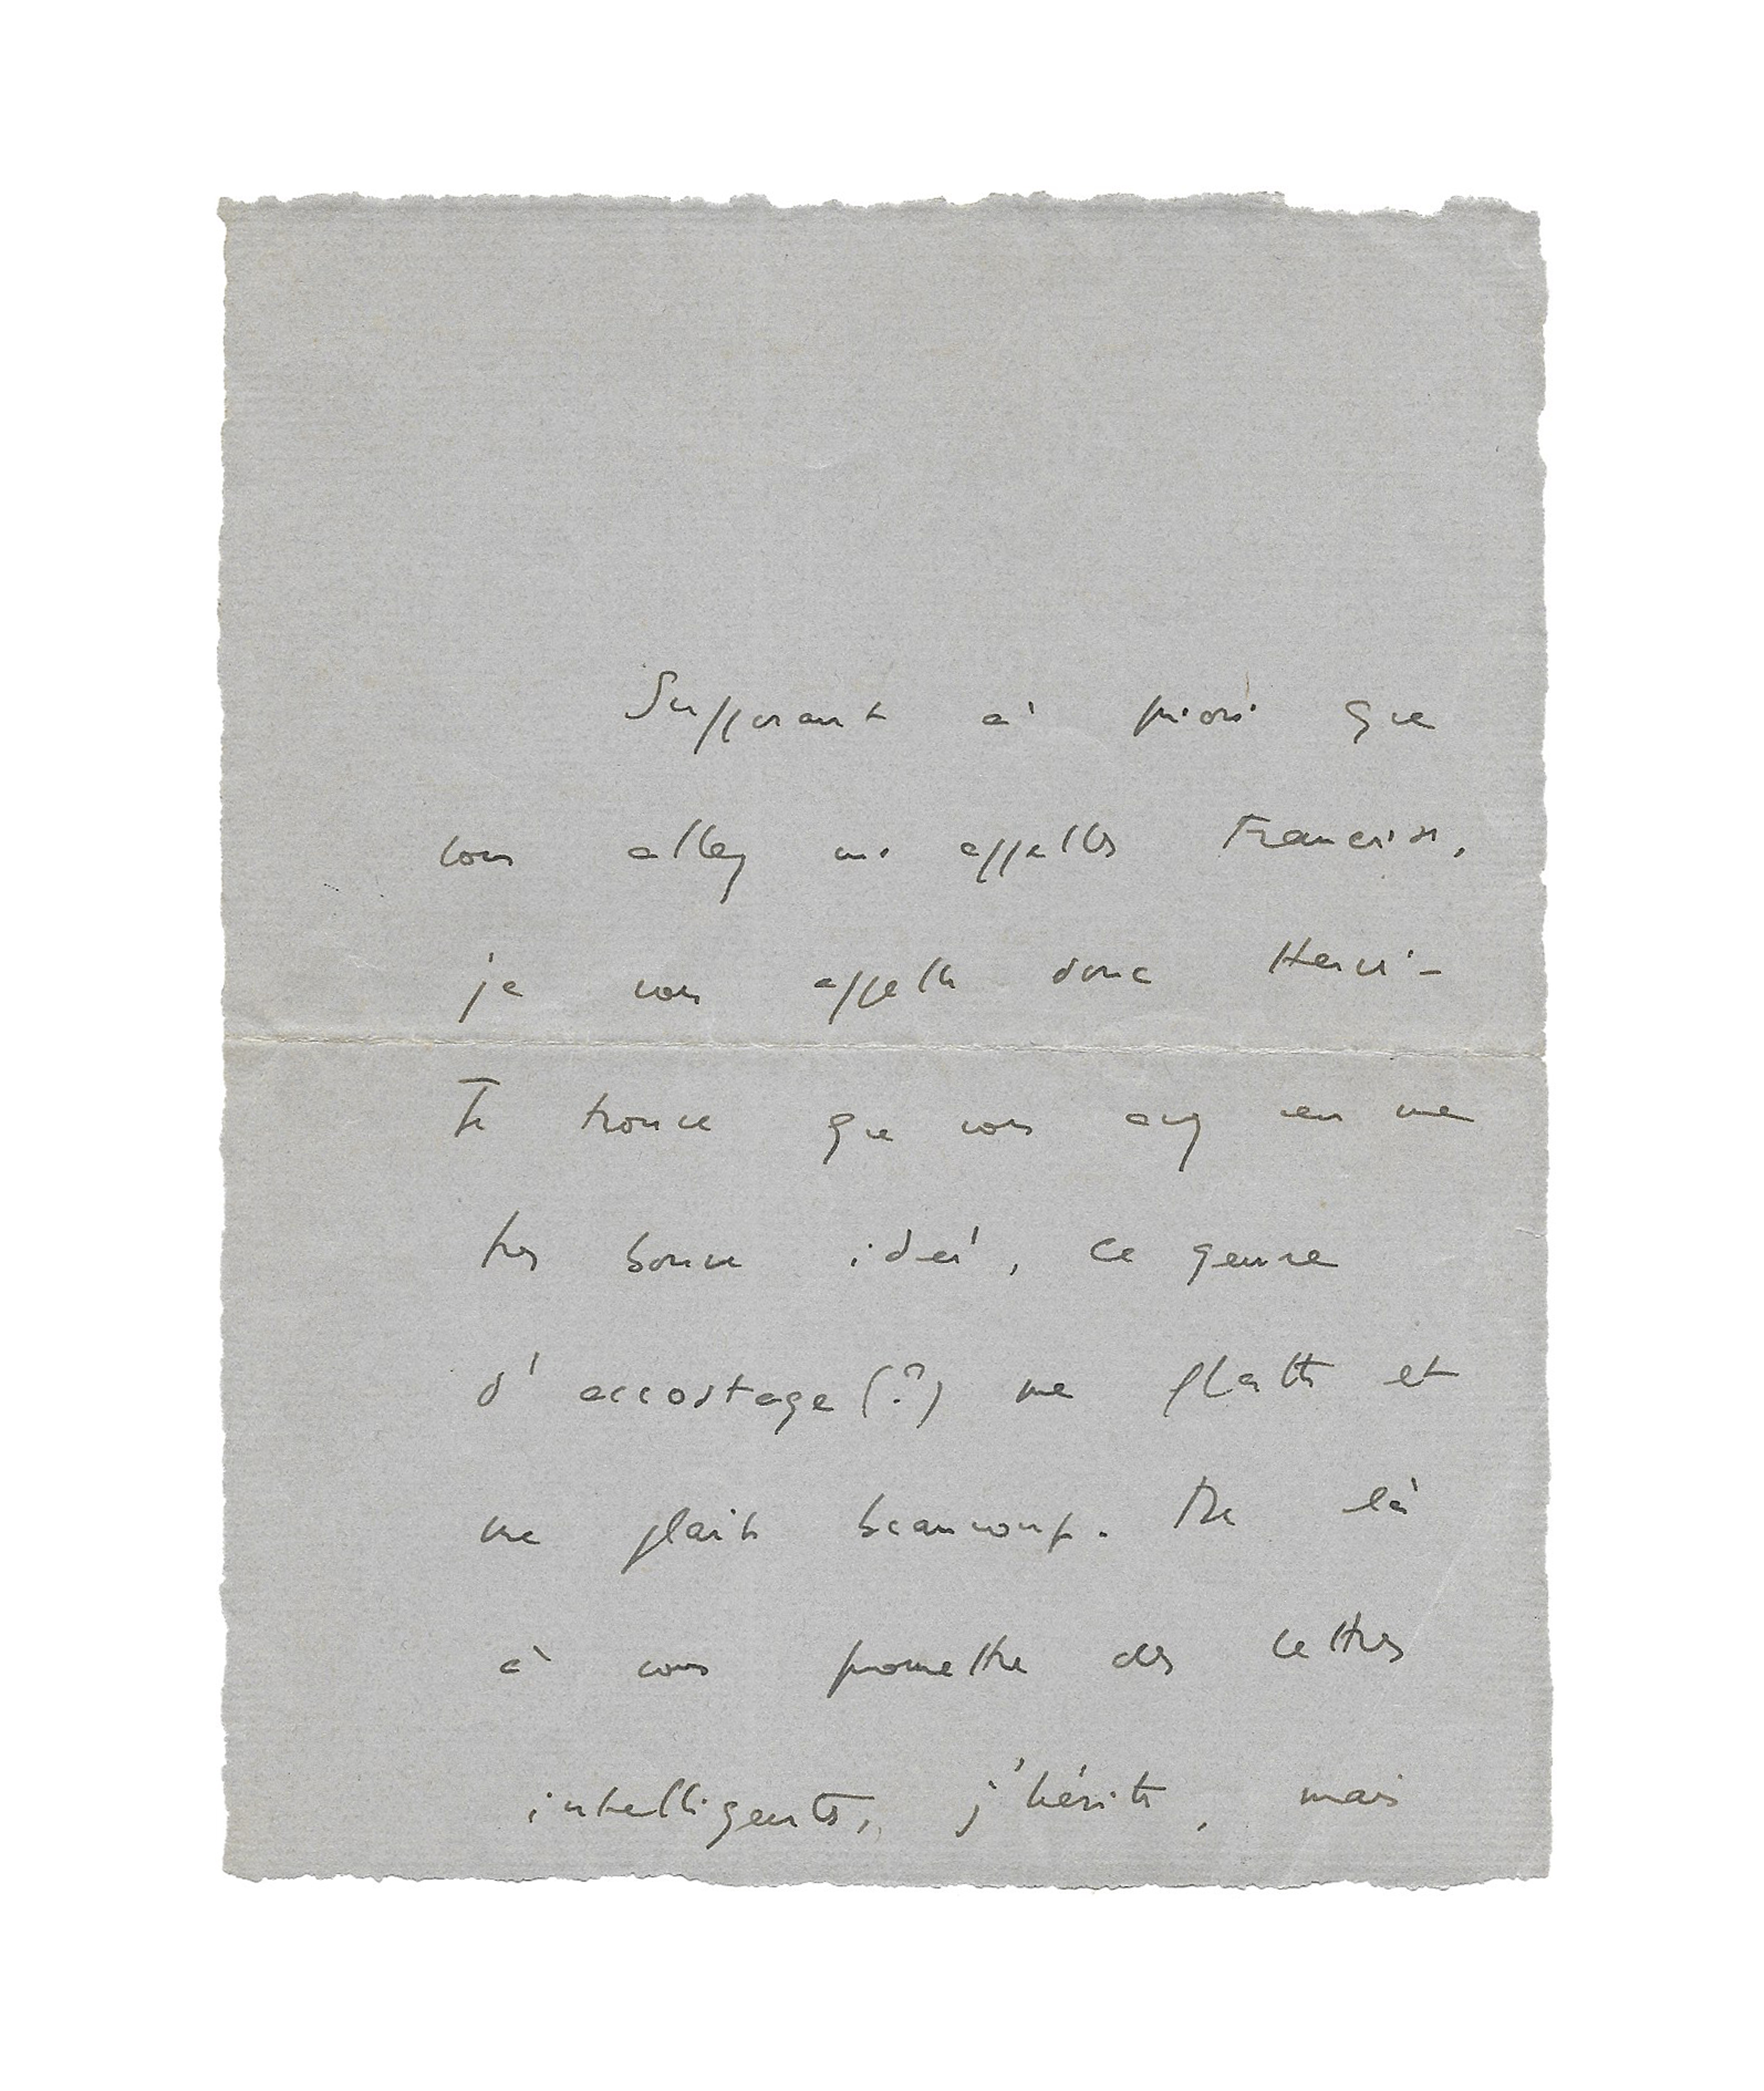 Supposant à priori que
vous allez m'appeller Francoise,
je vous appelle donc Henri-
Je trouve que vous avez eu une
tres bonne idée, ce genre
d'accostage (?) me flatte et
me plait beaucoup. De là
à vous promettre des lettres
intelligentes, j'hésite, mais